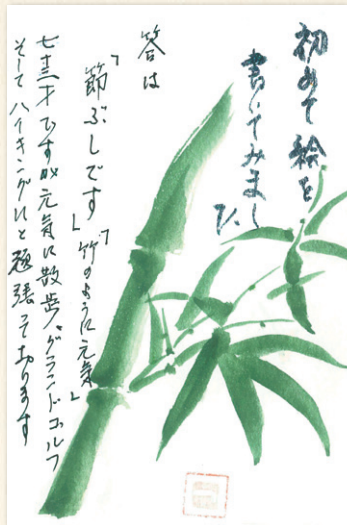 初めて絵を
書いてみまし
た
答は
「節ぶしです」「竹のように元気」
七十三才ですが元気に散歩、グランドゴルフ
そして ハイキングにと頑張って おります